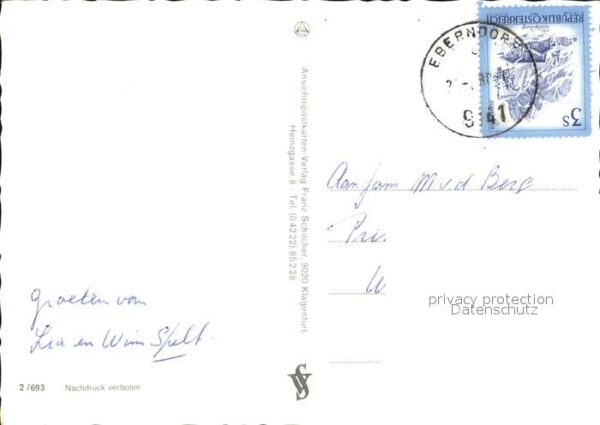 REPUBLIK ÖSTERREICH
3s
EBERNDORF
9141
Ansichtspostkarten-Verlag Franz Schilcher, 9020 Klagenfurt,
Heinzgasse 8 · Tel. (04222) 85228
Aan fam M v.d Berg
Pri
W
privacy protection
Datenschutz
Groeten van
Lia en Wim Spelt.
2/693 Nachdruck verboten